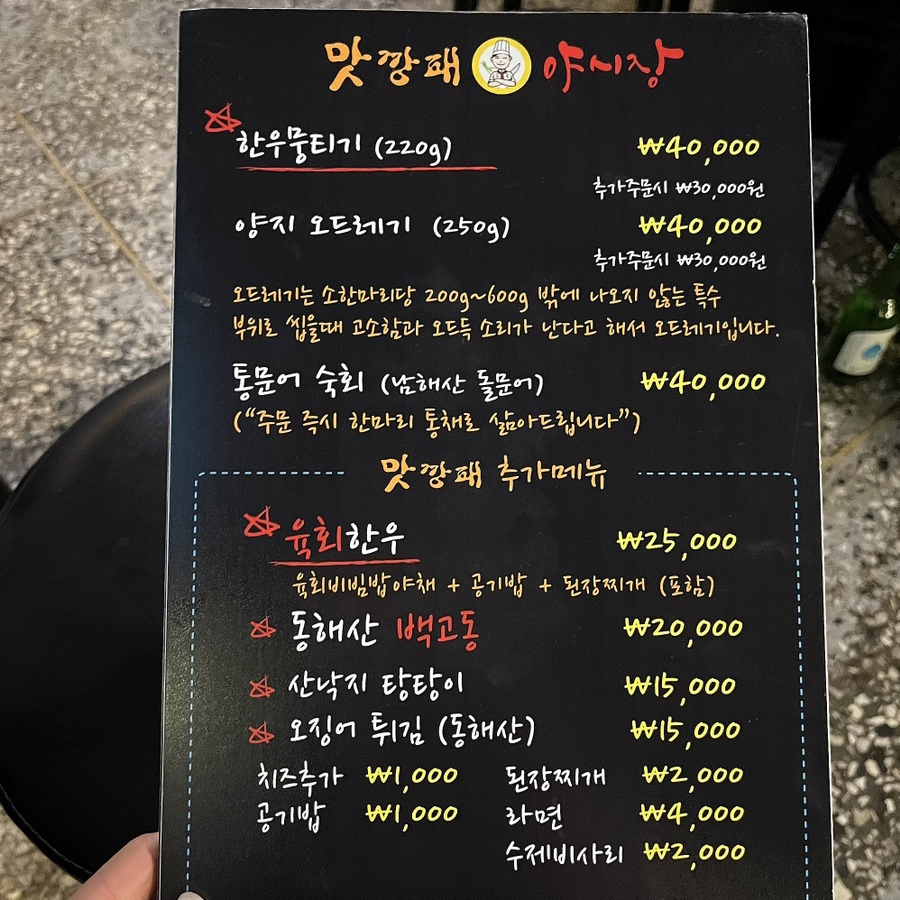 맛깡패 야시장
한우뭉티기 (220g) ₩40,000
추가주문시 ₩30,000원
양지 오드레기 (250g) ₩40,000
추가주문시 ₩30,000원
오드레기는 소한마리당 200g~600g 밖에 나오지 않는 특수
부위로 씹을때 고소함과 오드득 소리가 난다고 해서 오드레기입니다.
통문어 숙회 (남해산 돌문어) ₩40,000
("주문 즉시 한마리 통채로 삶아드립니다")
맛깡패 추가메뉴
육회한우 ₩25,000
육회비빔밥야채 + 공기밥 + 된장찌개 (포함)
동해산 백고동 ₩20,000
산낙지 탕탕이 ₩15,000
오징어 튀김 (동해산) ₩15,000
치즈추가 ₩1,000 된장찌개 ₩2,000
공기밥 ₩1,000 라면 ₩4,000
수제비사리 ₩2,000